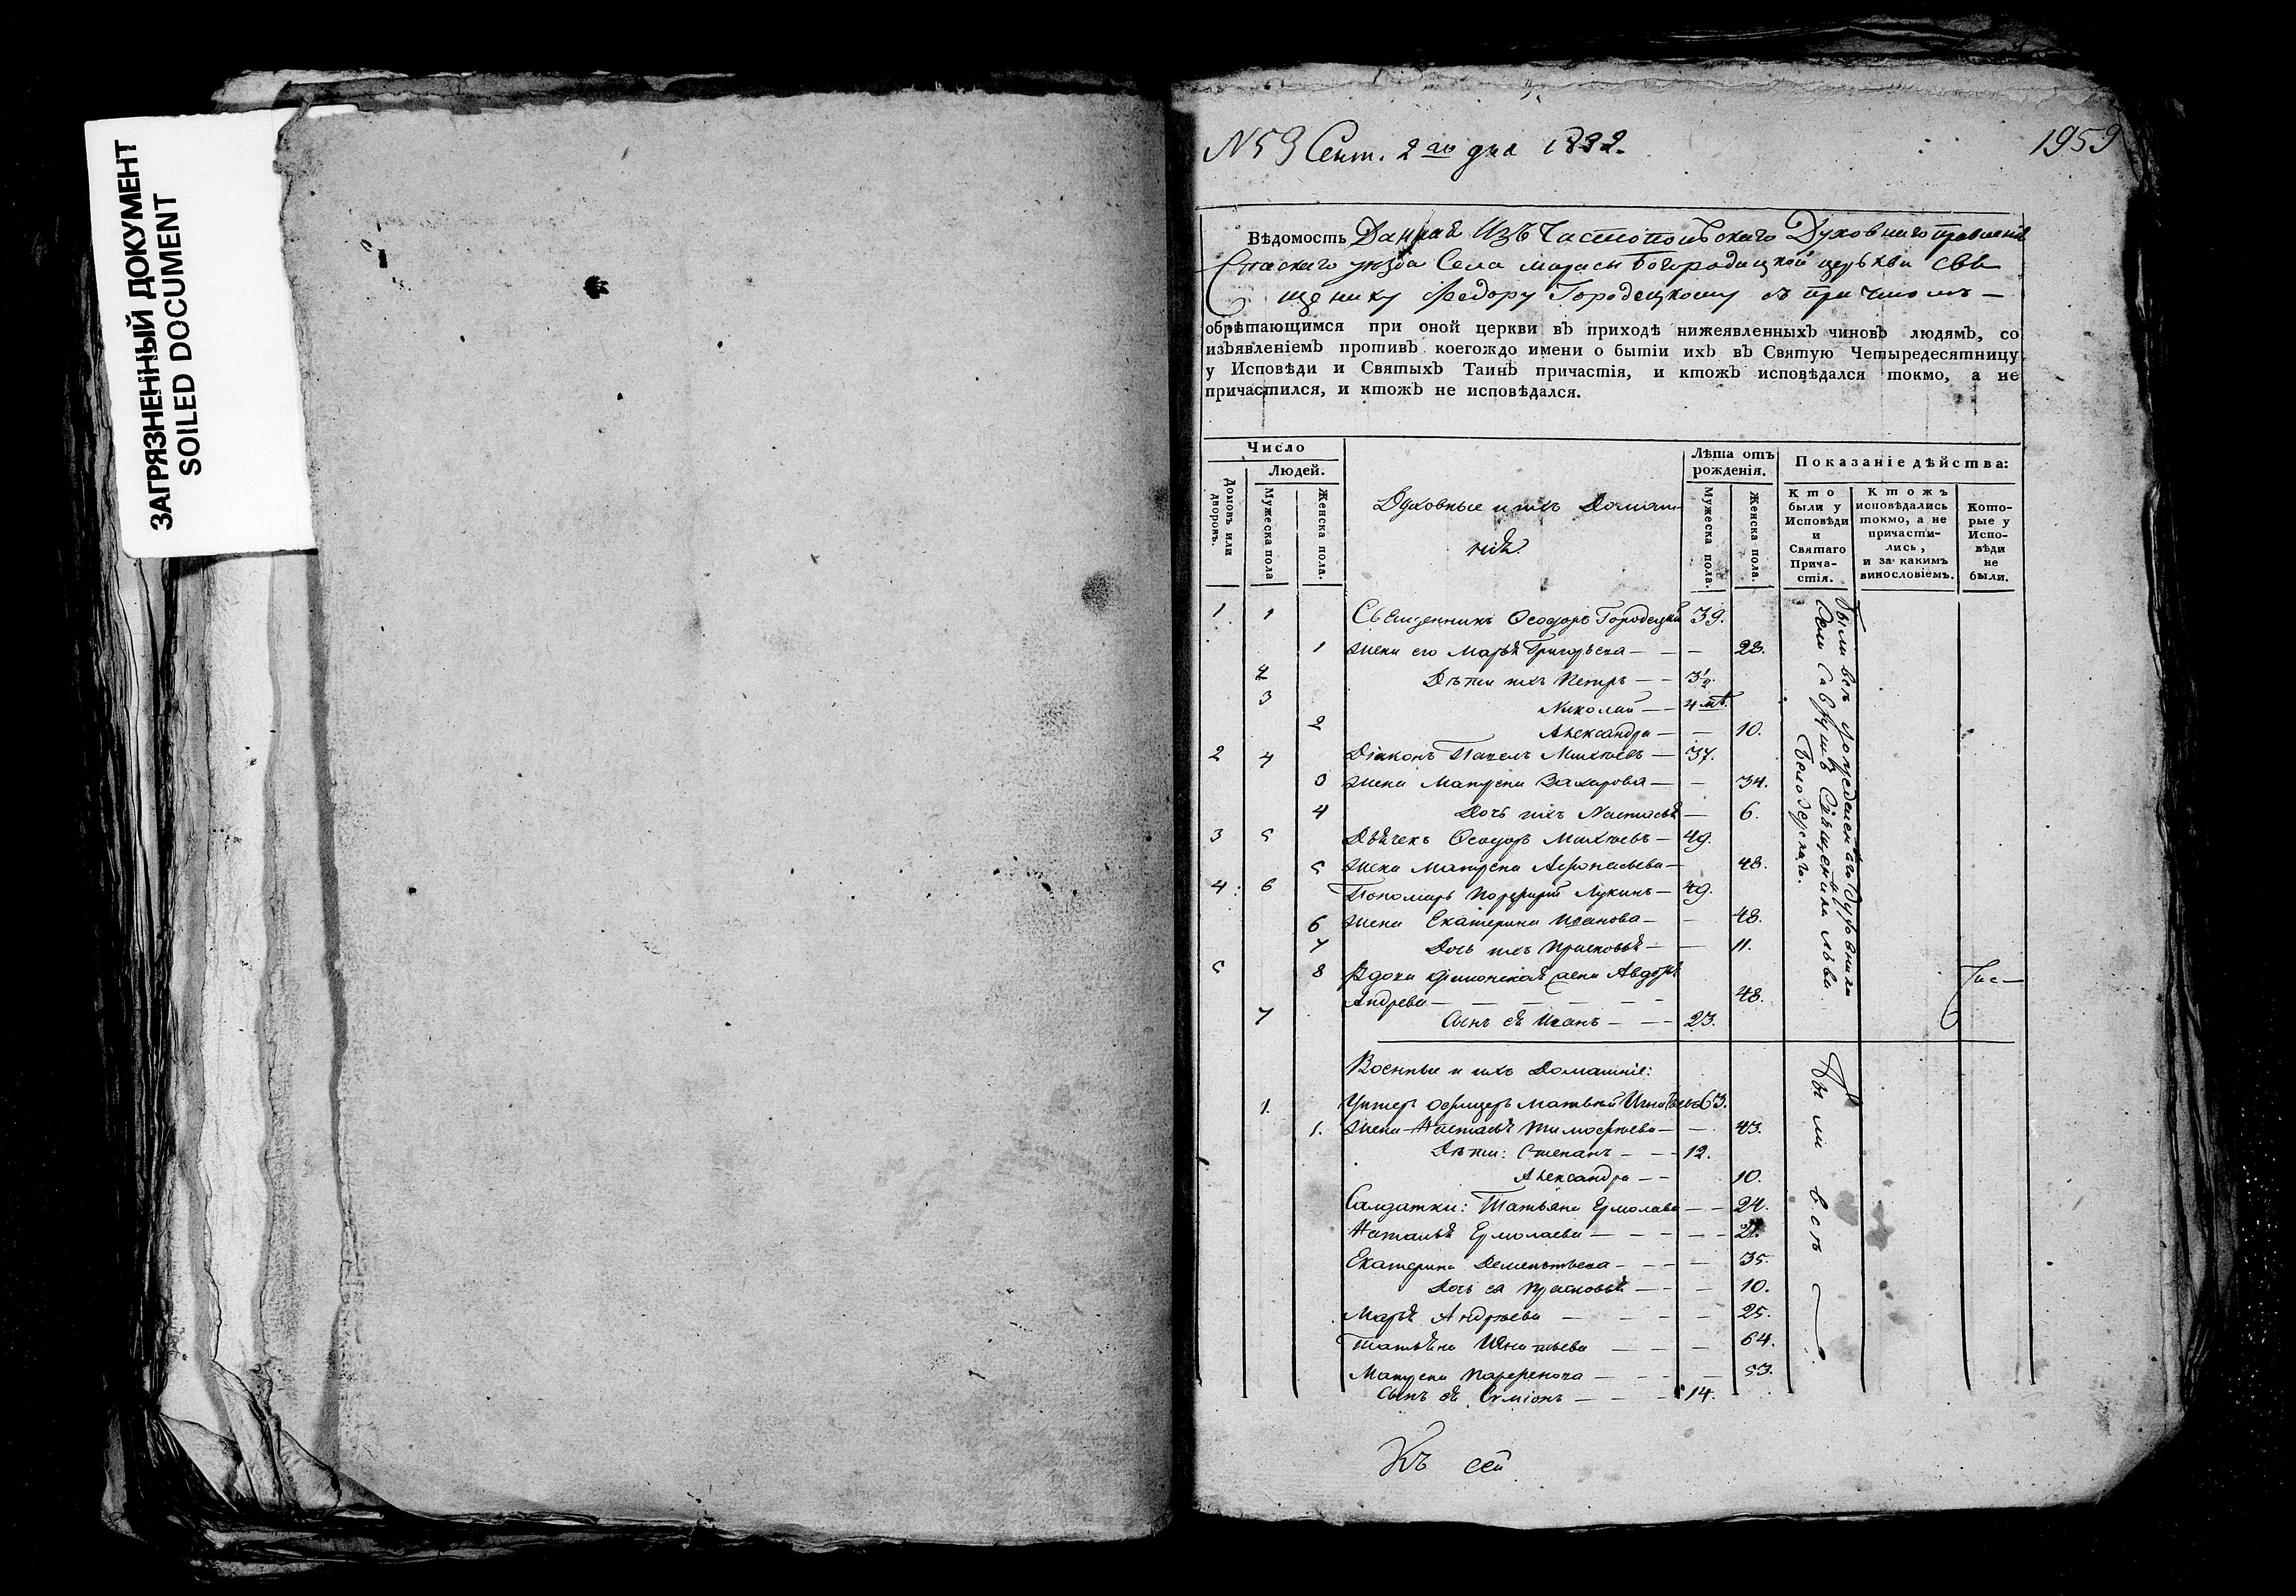 ЗАГРЯЗНЕННЫЙ ДОКУМЕНТ
SOILED DOCUMENT
N 59 Сент. 2го дня 1832.
1959
Вѣдомость Данная Изъ Чистопольскаго Духовнаго правленія
Спаскаго уѣзда Села марасы Богородицкой церькви свя
щенику Федору Городецкому съ причтомъ —
обрѣтающимся при оной церкви въ приходѣ нижеявленныхъ чиновъ людямъ, со
изъявленіемъ противъ коегождо имени о бытіи ихъ въ Святую Четыредесятницу
у Исповѣди и Святыхъ Таинъ причастія, и ктожъ исповѣдался токмо, а не
причастился, и ктожъ не исповѣдался.
Число
Людей.
Домовъ или дворовъ.
Мужеска пола
Женска пола.
Духовные и ихъ Домаш-
нія
Лѣта отъ рожденія.
Мужеска пола.
Женска пола.
Показаніе дѣйства:
Кто были у Исповѣди и Святаго Прича-стія.
Ктожъ исповѣдались токмо, а не причасти-лись, и за какимъ винословіемъ.
Кото-рые у Испо-вѣди не были.
1 1 Священникъ Ѳеодоръ Городецкій 39.
1 жена его Марья Григорьева — — — 28.
2 Дѣти ихъ Петръ — — 3½.
3 Николай — — 4 мѣ.
2 Александра — — 10.
2 4 Діаконъ Павелъ Михѣевъ — 37.
жена Матрена Захарова — — 34.
4 Дочь ихъ Настасья — 6.
3 5 Дьячекъ Ѳеодоръ Михѣевъ — 49.
5 жена Матрена Афонасьева — 48.
4: 6 Пономарь Порфирій Лукинъ — 49.
6 жена Екатерина Иванова — — 48.
7 Дочь ихъ Прасковья — — 11.
5 8 Вдова жена Авдотья
Андрева — — — — — — 48.
7 Сынъ ея Иванъ — — — 23.
Были всѣ
Священника
Военные и ихъ Домашніе:
1. Унтеръ офицеръ Матвей 63.
1. жена Настасья Тимофѣева — — 43.
Дѣти: Степанъ — — — 12.
Александра — — 10.
Салдатки: Татьяна Ермолаева — — 24.
Наталья Ермолаева — — — — —
Екатерина Дементьева — — — — 35.
Дочь ея Прасковья — — — 10.
Марья Андрѣева — — — — 25.
Татьяна Игнатьева — — — 64.
Матрена — — — 53.
Сынъ ея Семіонъ — — — 14.
Были всѣ
Къ сей